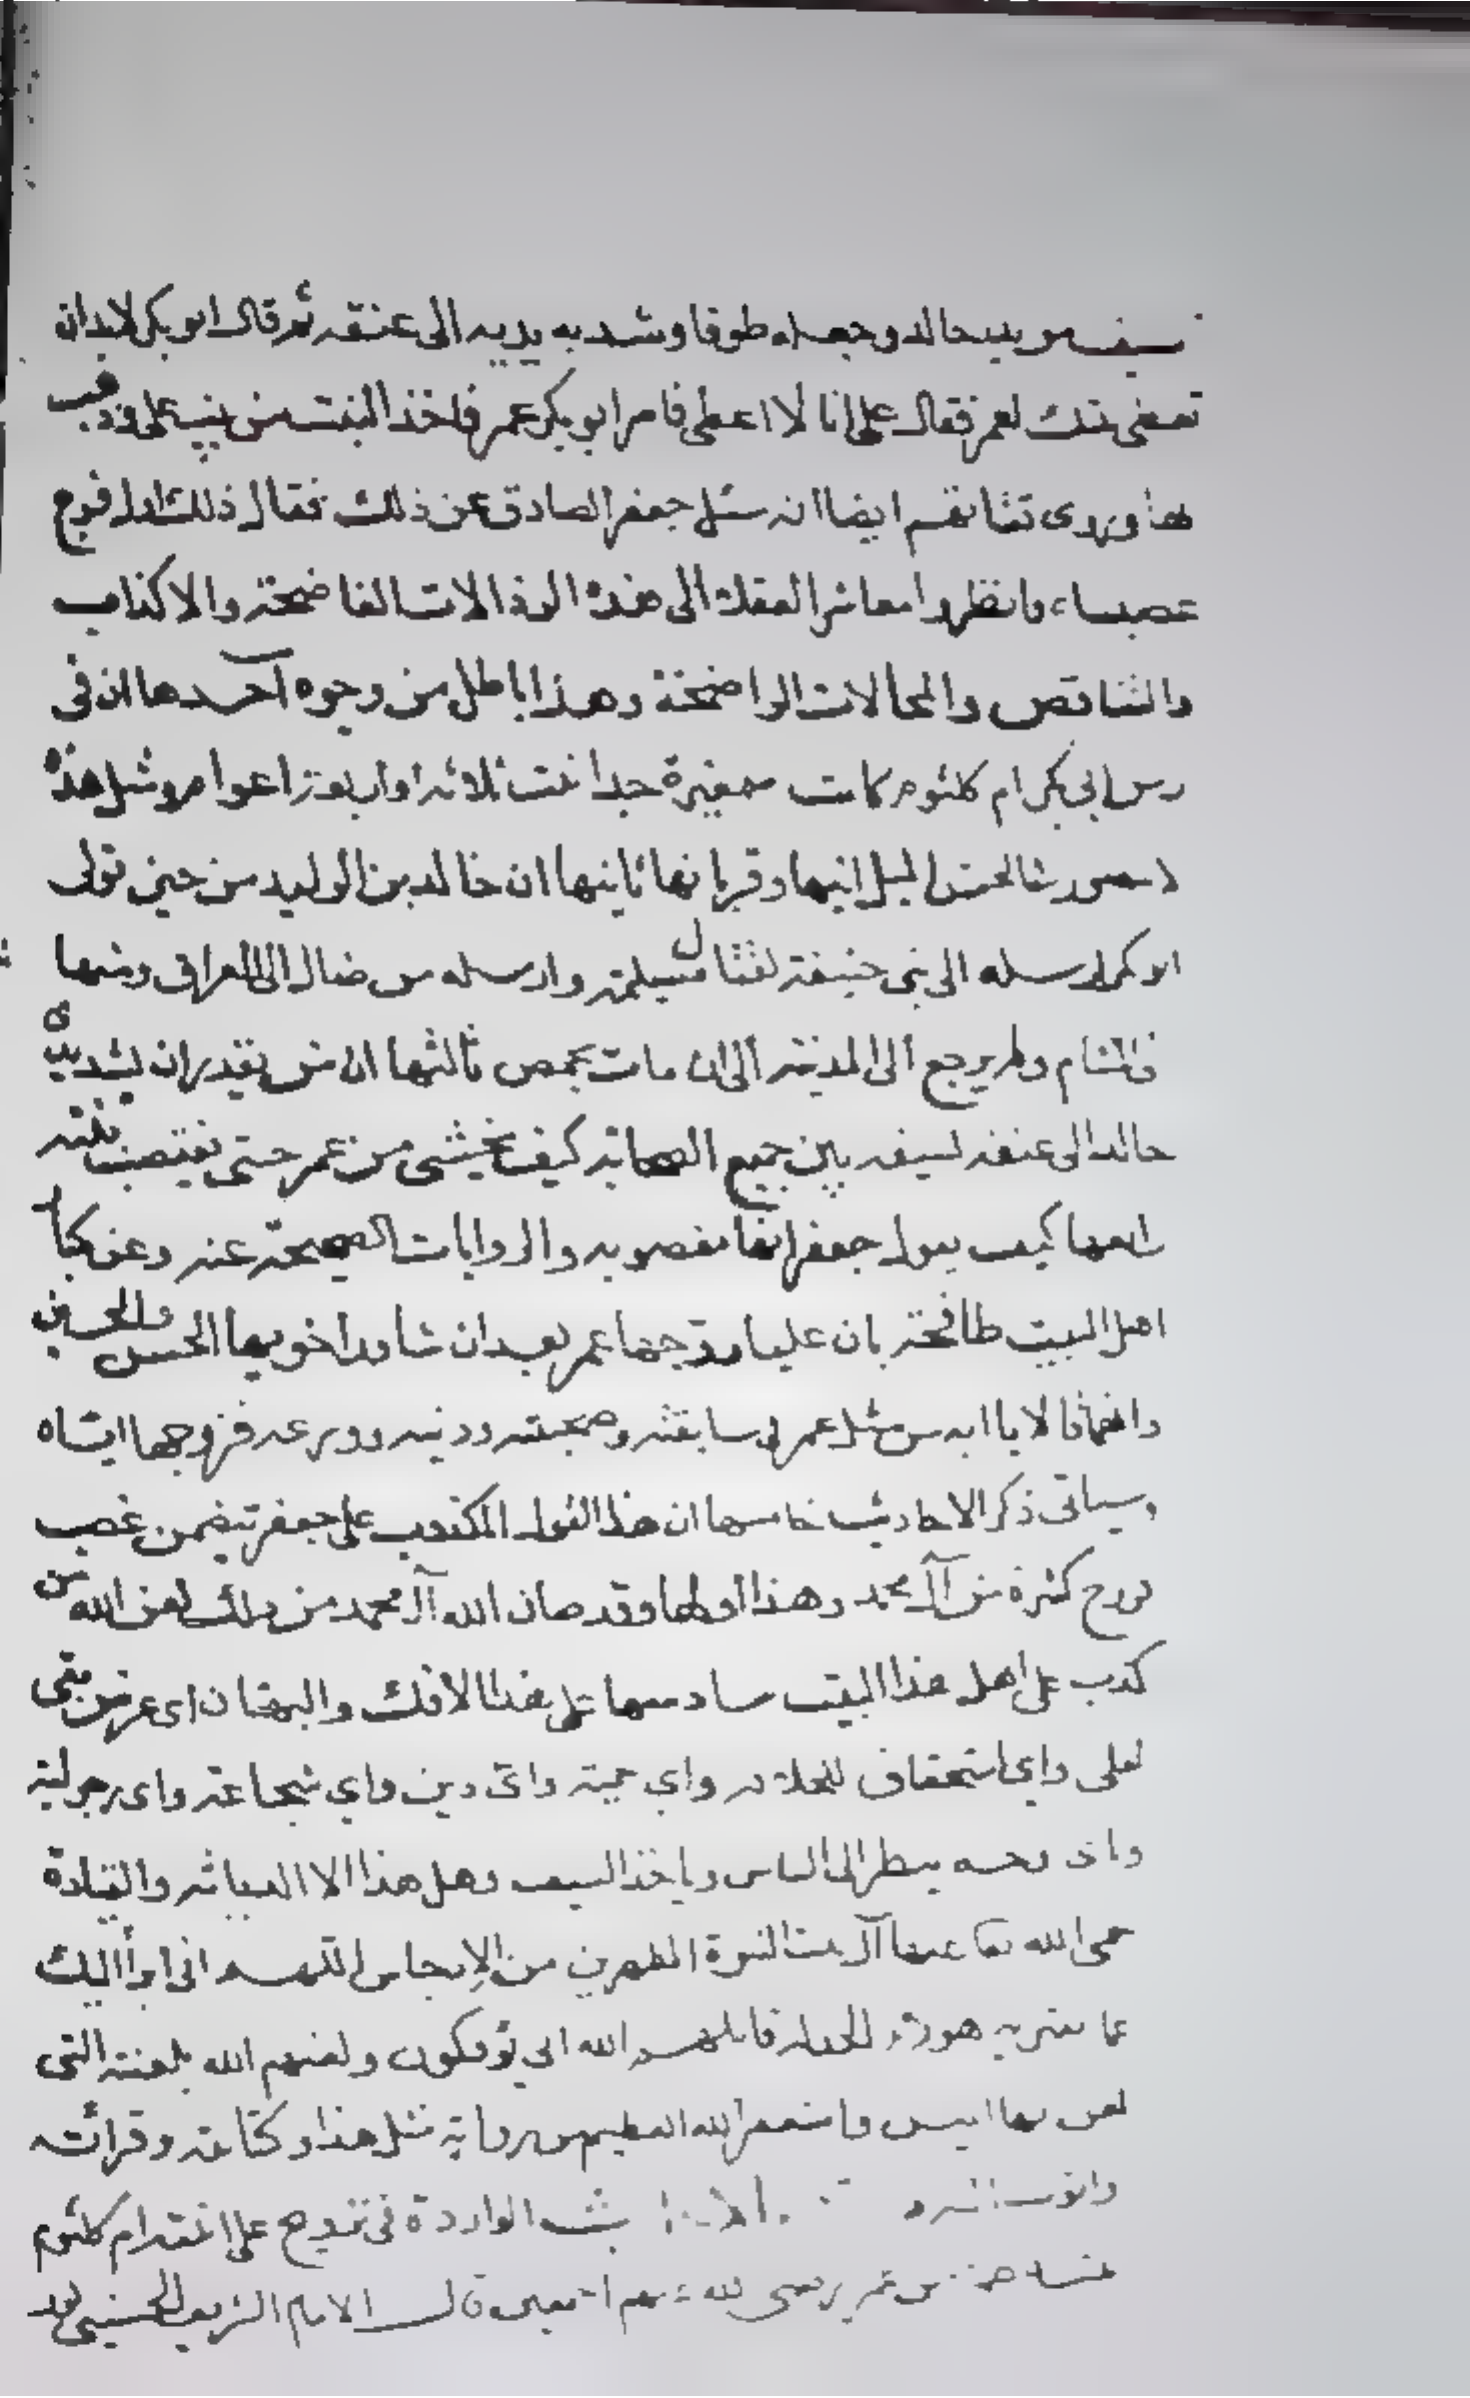 سيف من يد خالد وجعله طوقا وشد به يديه الى عنقه ثم قال ابو بكر لابد ان
تعطى بنتك لعمر فقال على انا لا اعطى فامر ابو بكر عمر فاخذ البنت من بيت على وذهب
بها وروى ثقاتهم ايضا انه سئل جعفر الصادق عن ذلك فقال ذلك اول فرج
غصبناه فانظروا معاشر العقلاء الى هذه الرذالات الفاضحة والاكذاب
والتناقص والمحالات الواضحة وهذا باطل من وجوه آحدها ان فى
زمن ابى بكر ام كلثوم كانت صغيرة جدا بنت ثلاثة او اربعة اعوام ومثل هذه
لا الميل اليها وقربانها ثانيها ان خالد بن الوليد من حين تولى
ابو بكر ارسله الى بنى حنيفة لقتال مسيلمة وارسله من الى العراق ومنها
فى الشام ولم يرجع الى المدينة الى ان مات بحمص ثالثها ان من يقدر ان يشد يدى
خالد الى عنقه بسيفه بين جميع الصحابة كيف يخشى من عمر حتى يغتصب بنته
رابعها كيف يقول جعفر انها مغصوبه والروايات الصحيحة عنه وعن كبار
اهل البيت طافحة بان عليا زوجها عمر بعد ان شاور اخويها الحسن والحسين
وانهما قالا يا ابه من مثل عمر فى سابقته وصحبته ودينه وورعه فزوجها اياه
وسياتى ذكر الاحاديث خامسها ان هذا القول المكذوب على جعفر تيضمن غصب
فروج كثيرة من آل محمد وهذا اولها وقد صان الله آل محمد من ذلك لعن الله من
كذب على اهل هذا البيت سادسها على هذا الافك والبهتان اى عرض بقى
لعلى واي استحقاق للخلافة واي حمية واى دين واي شجاعة واى رجولية
ينظر الى الناس وياخذ السيف وهل هذا الا الدياثه والقيادة
حمى الله تعا عنها آل بيت النبوة المطهرين من الارجاس اللهم انى ابرأ اليك
مما يفتريه هؤلاء قاتلهم الله انى يؤفكون ولعنهم الله بلعنته التى
لعن بها ابليس واستغفر الله العظيم من رواية مثل هذا وكتابته وقرائته
الواردة فى تزويج على ابنته ام كلثوم
عمر رضى الله عنهم اجمعين قال الامام الشريف الحسينى